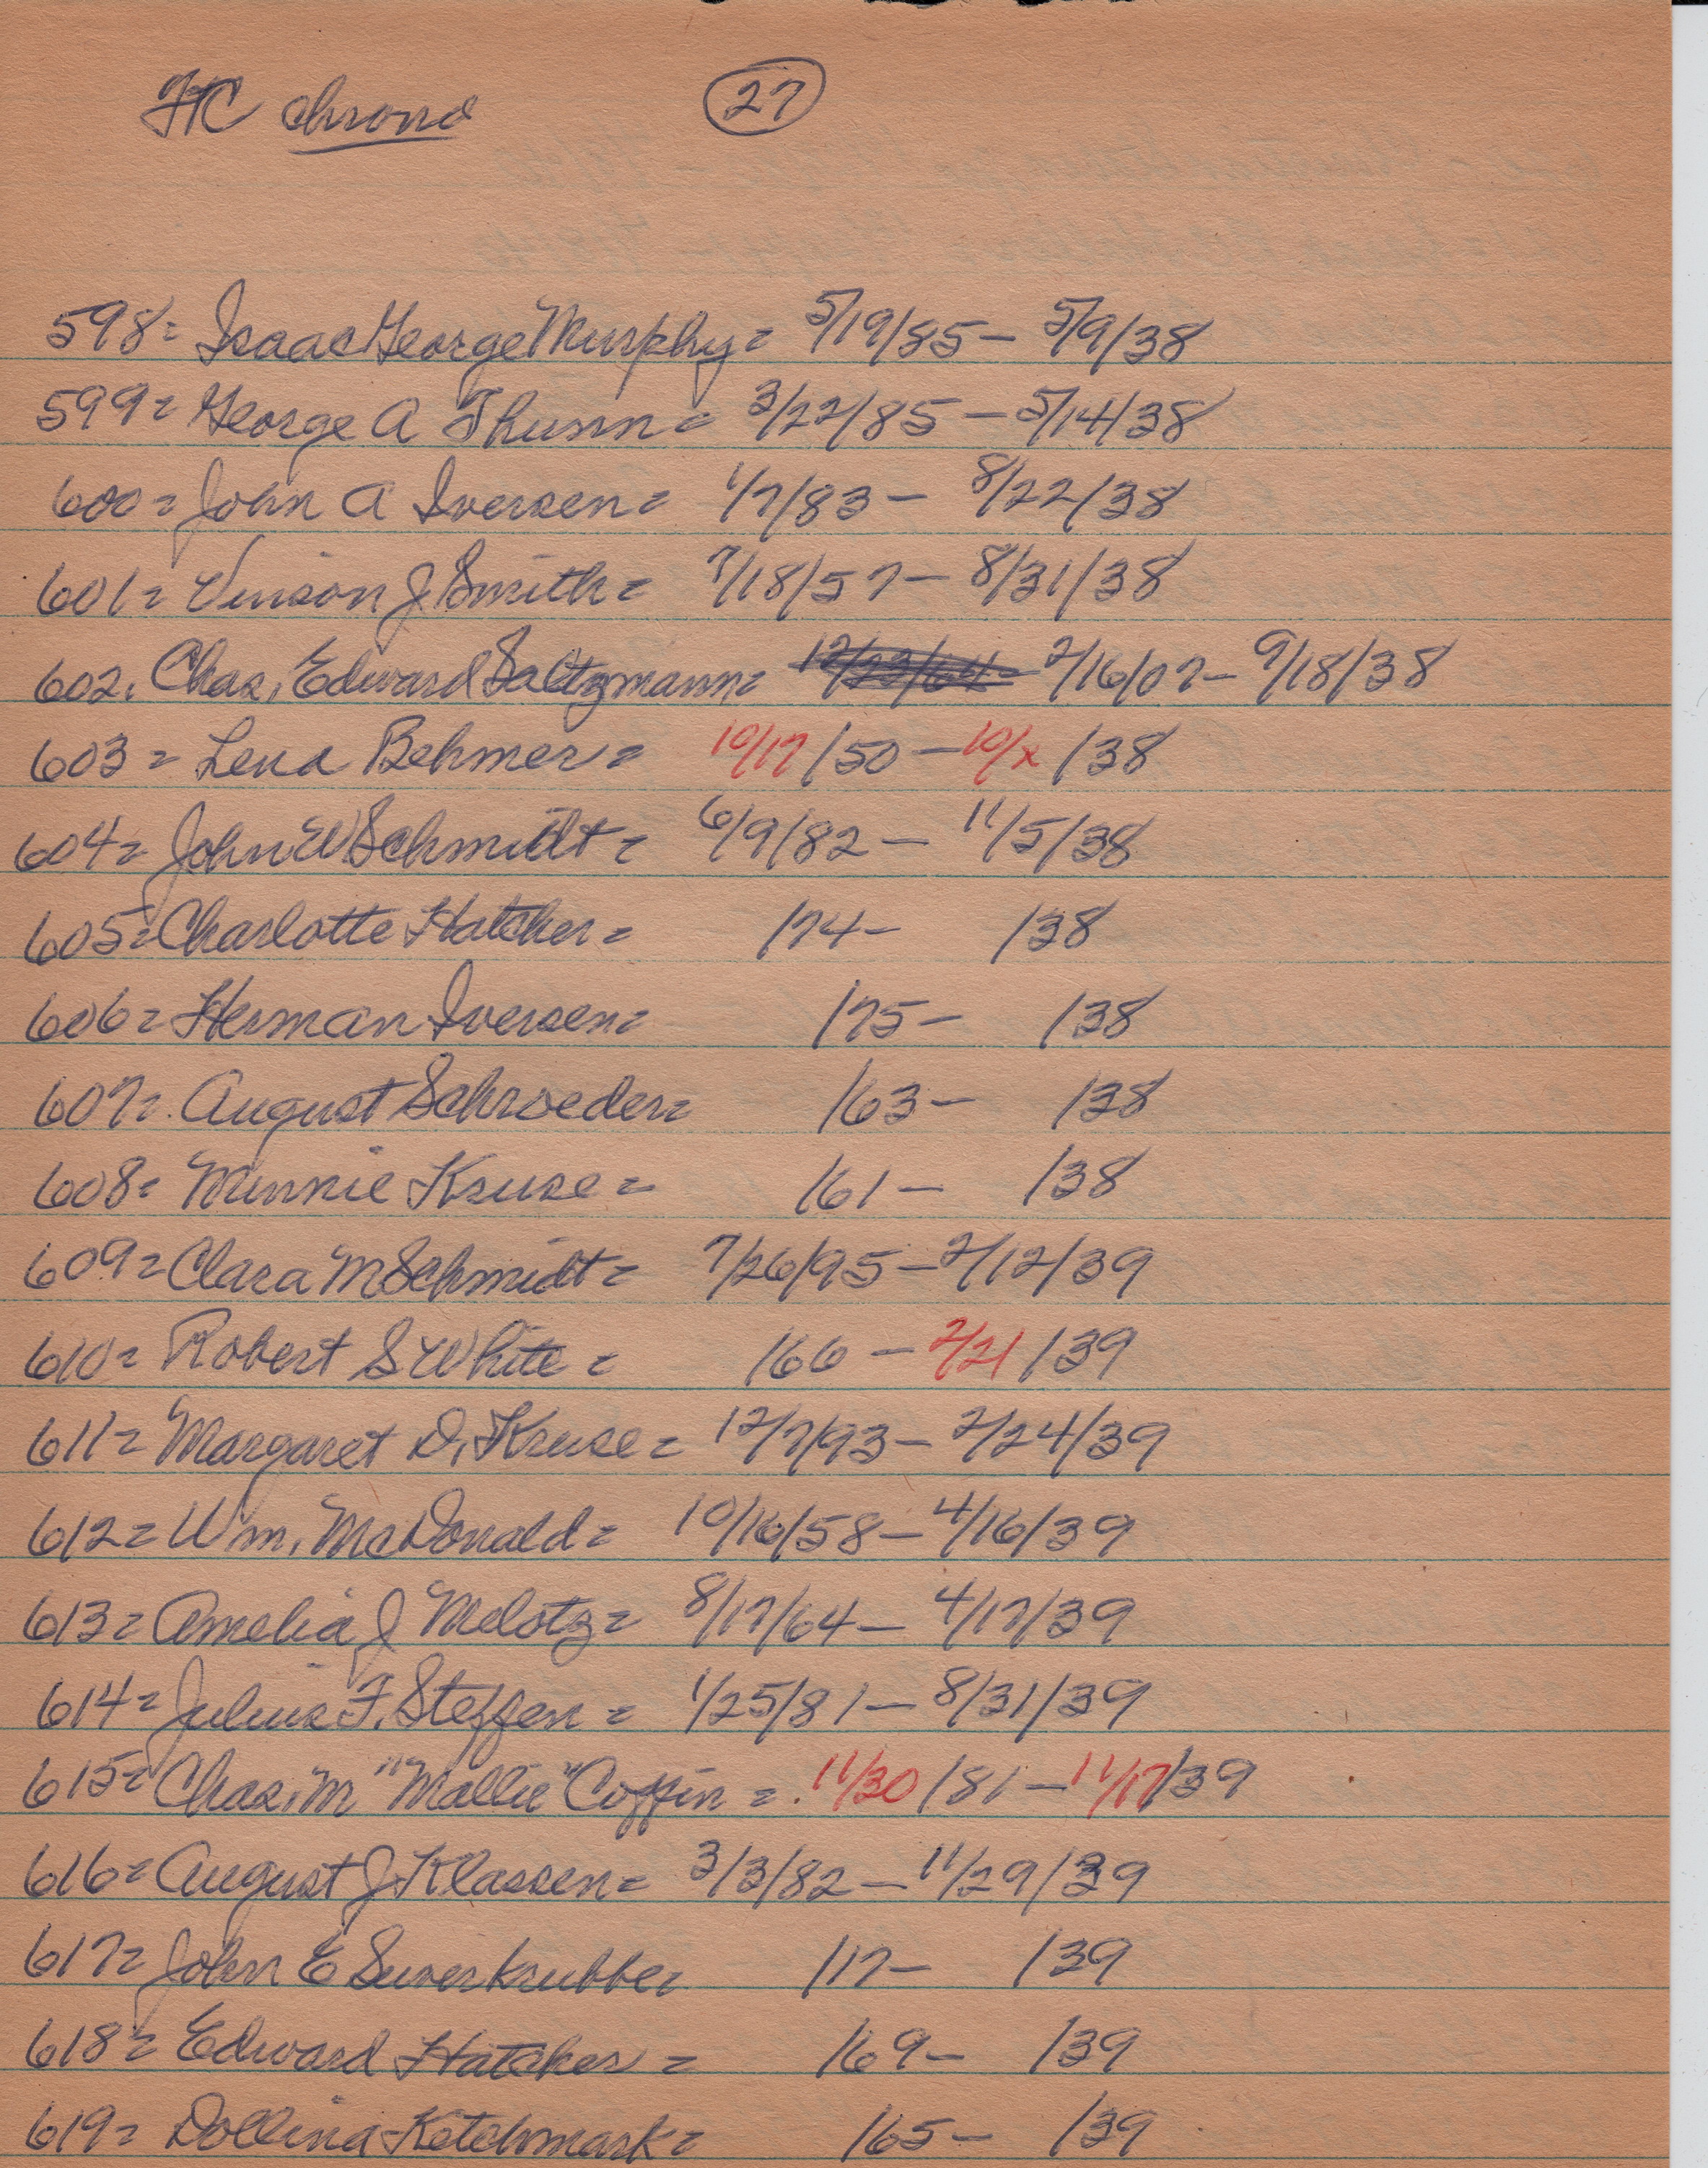 FTC chrono 27
598= Isaac George Murphy= 5/19/85- 5/9/38
599= George A Thumm= 3/22/85-5/14/38
600= John A Iversen= 1/7/83- 8/22/38
601= Vinson J. Smith= 7/18/57- 8/31/38
602. Chas. Edward Saltzmann= 12/23/64- 2/16/07- 9/18/38
603= Lena Behmer= 10/17/50-10/x/38
604= John W Schmidt= 6/9/82- 11/5/38
605= Charlotte Hatcher= /74- /38
606= Herman Iversen= /75- /38
607= August Schroeder= /63- /38
608= Minnie Kruse= /61- /38
609= Clara M Schmidt= 7/26/95-2/12/39
610= Robert S White= /66-2/21/39
611= Margaret D. Kruse= 12/7/93-2/24/39
612= Wm. McDonald= 10/16/58-4/16/39
613= Amelia J Melotz= 8/17/64- 4/17/39
614= Julius F. Steffen= 1/25/81-8/31/39
615= Chas. M "Mallie" Coffin= 11/30/81-11/17/39
616= August J. Klassen= 3/3/82-11/29/39
617= John E Suverkrubbe= /17- /39
618= Edward Hatcher= /69- /39
619= Dollina Ketchmark= /65- /39